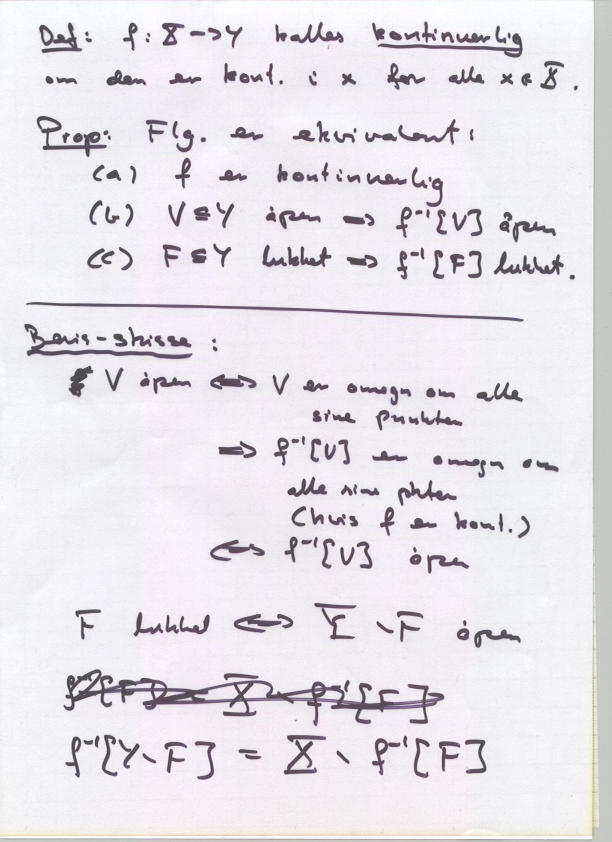 Def: f: X → Y kalles kontinuerlig
om den er kont. i x for alle x ∈ X.
Prop: Flg. er ekvivalent:
(a) f er kontinuerlig
(b) V ⊆ Y åpen ⇒ f⁻¹[V] åpen
(c) F ⊆ Y lukket ⇒ f⁻¹[F] lukket.
Bevis-skisse:
V åpen ⇔ V er omegn om alle
sine punkter
⇒ f⁻¹[V] er omegn om
alle sine pkter
(hvis f er kont.)
⇔ f⁻¹[V] åpen
F lukket ⇔ Y \ F åpen
f⁻¹[Y \ F] = X \ f⁻¹[F]